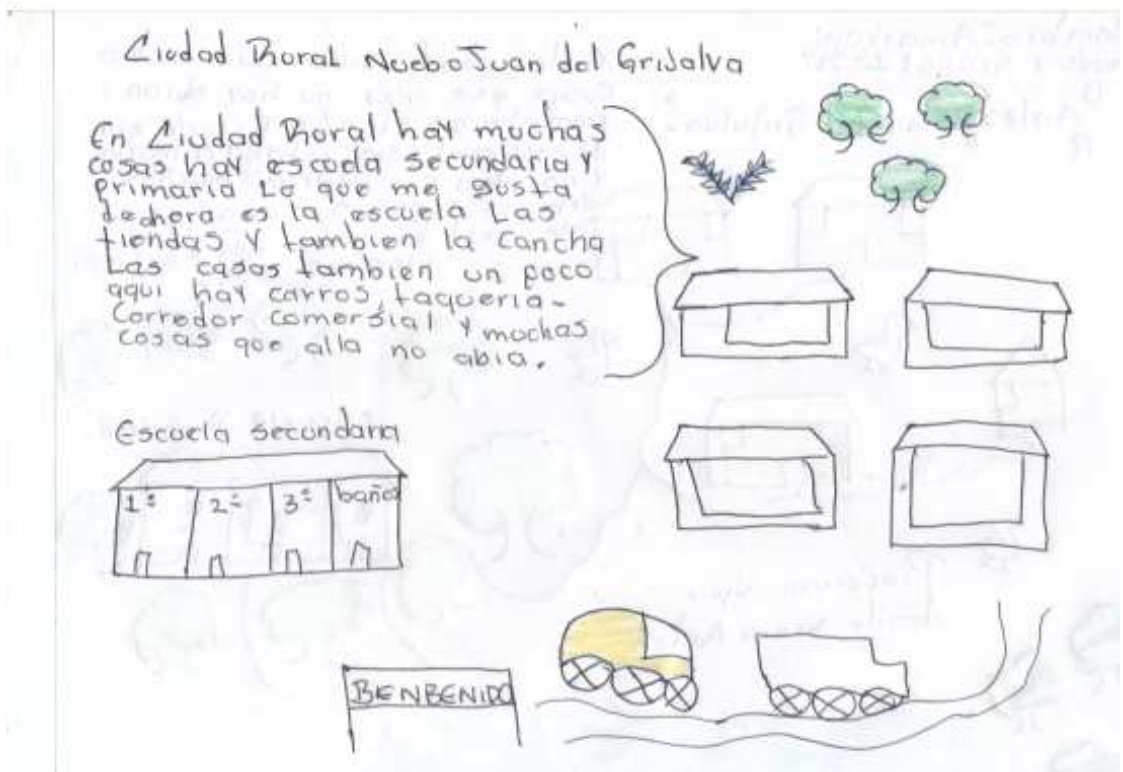 Ciudad Rural Nuebo Juan del Grijalva
En Ciudad Rural hay muchas
cosas hay escuela secundaria y
primaria Lo que me gusta
dechora es la escuela Las
tiendas y tambien la Cancha
Las casas tambien un poco
aqui hay carros, taqueria-
Corredor comersial y muchas
cosas que alla no abia.
Escuela secundaria
1º 2º 3º baños
BIENBENIDO